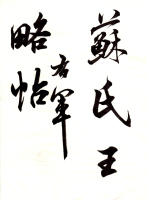 蘇氏王
右軍
略帖